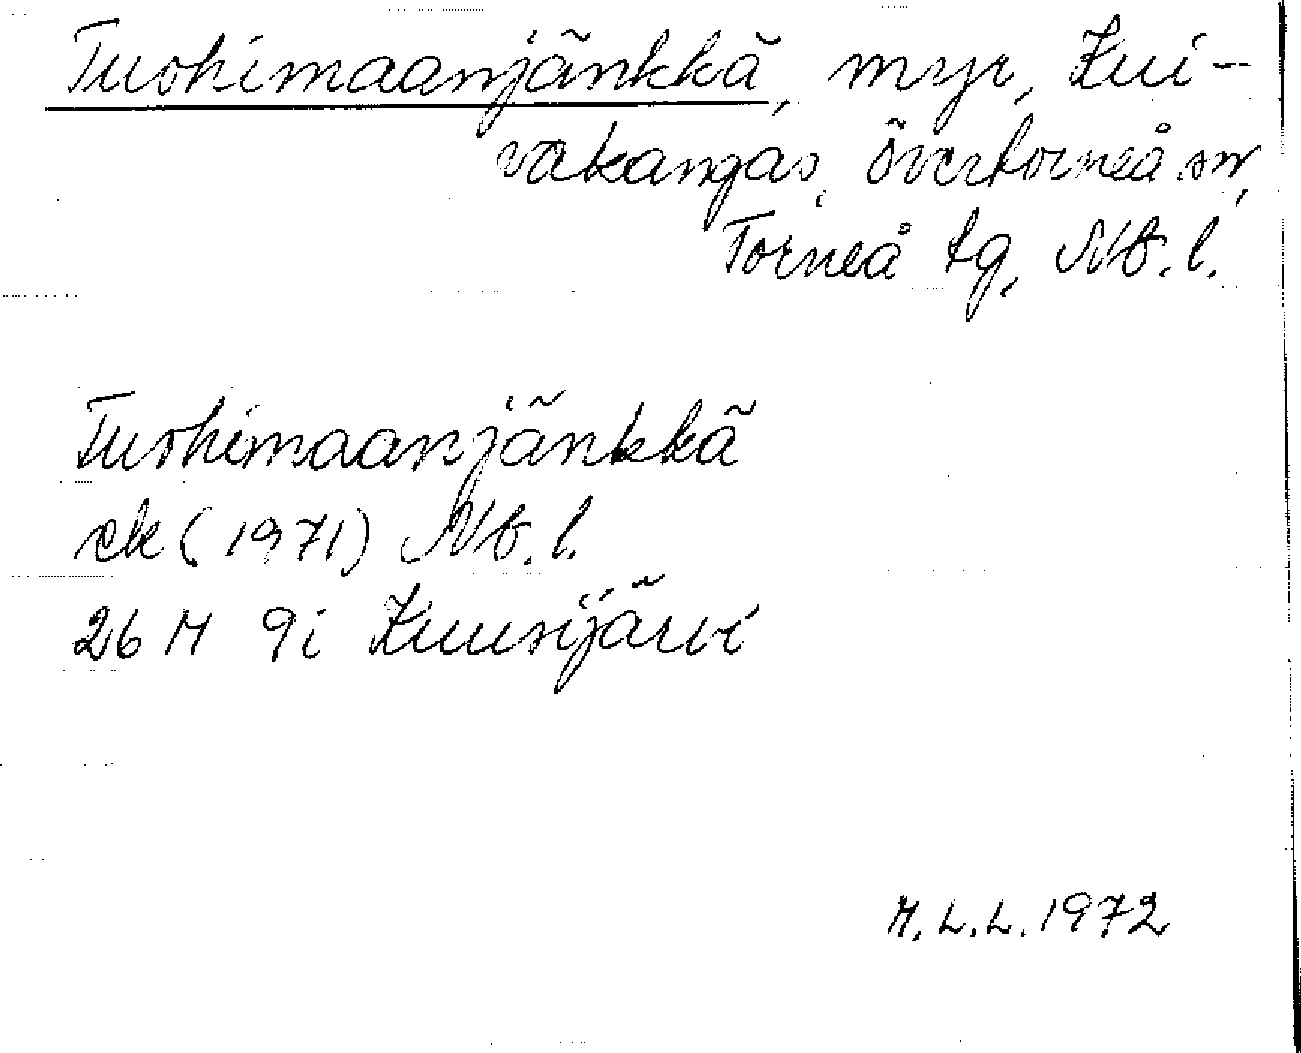 Tuohimaanjänkkä, myr, Kui-
vakangas, Övertorneå sn,
Torneå tg, Nb. l.
Tuohimaanjänkkä
ek (1971) Nb. l.
26 M 9i Kuusijärvi
M. L. L. 1972